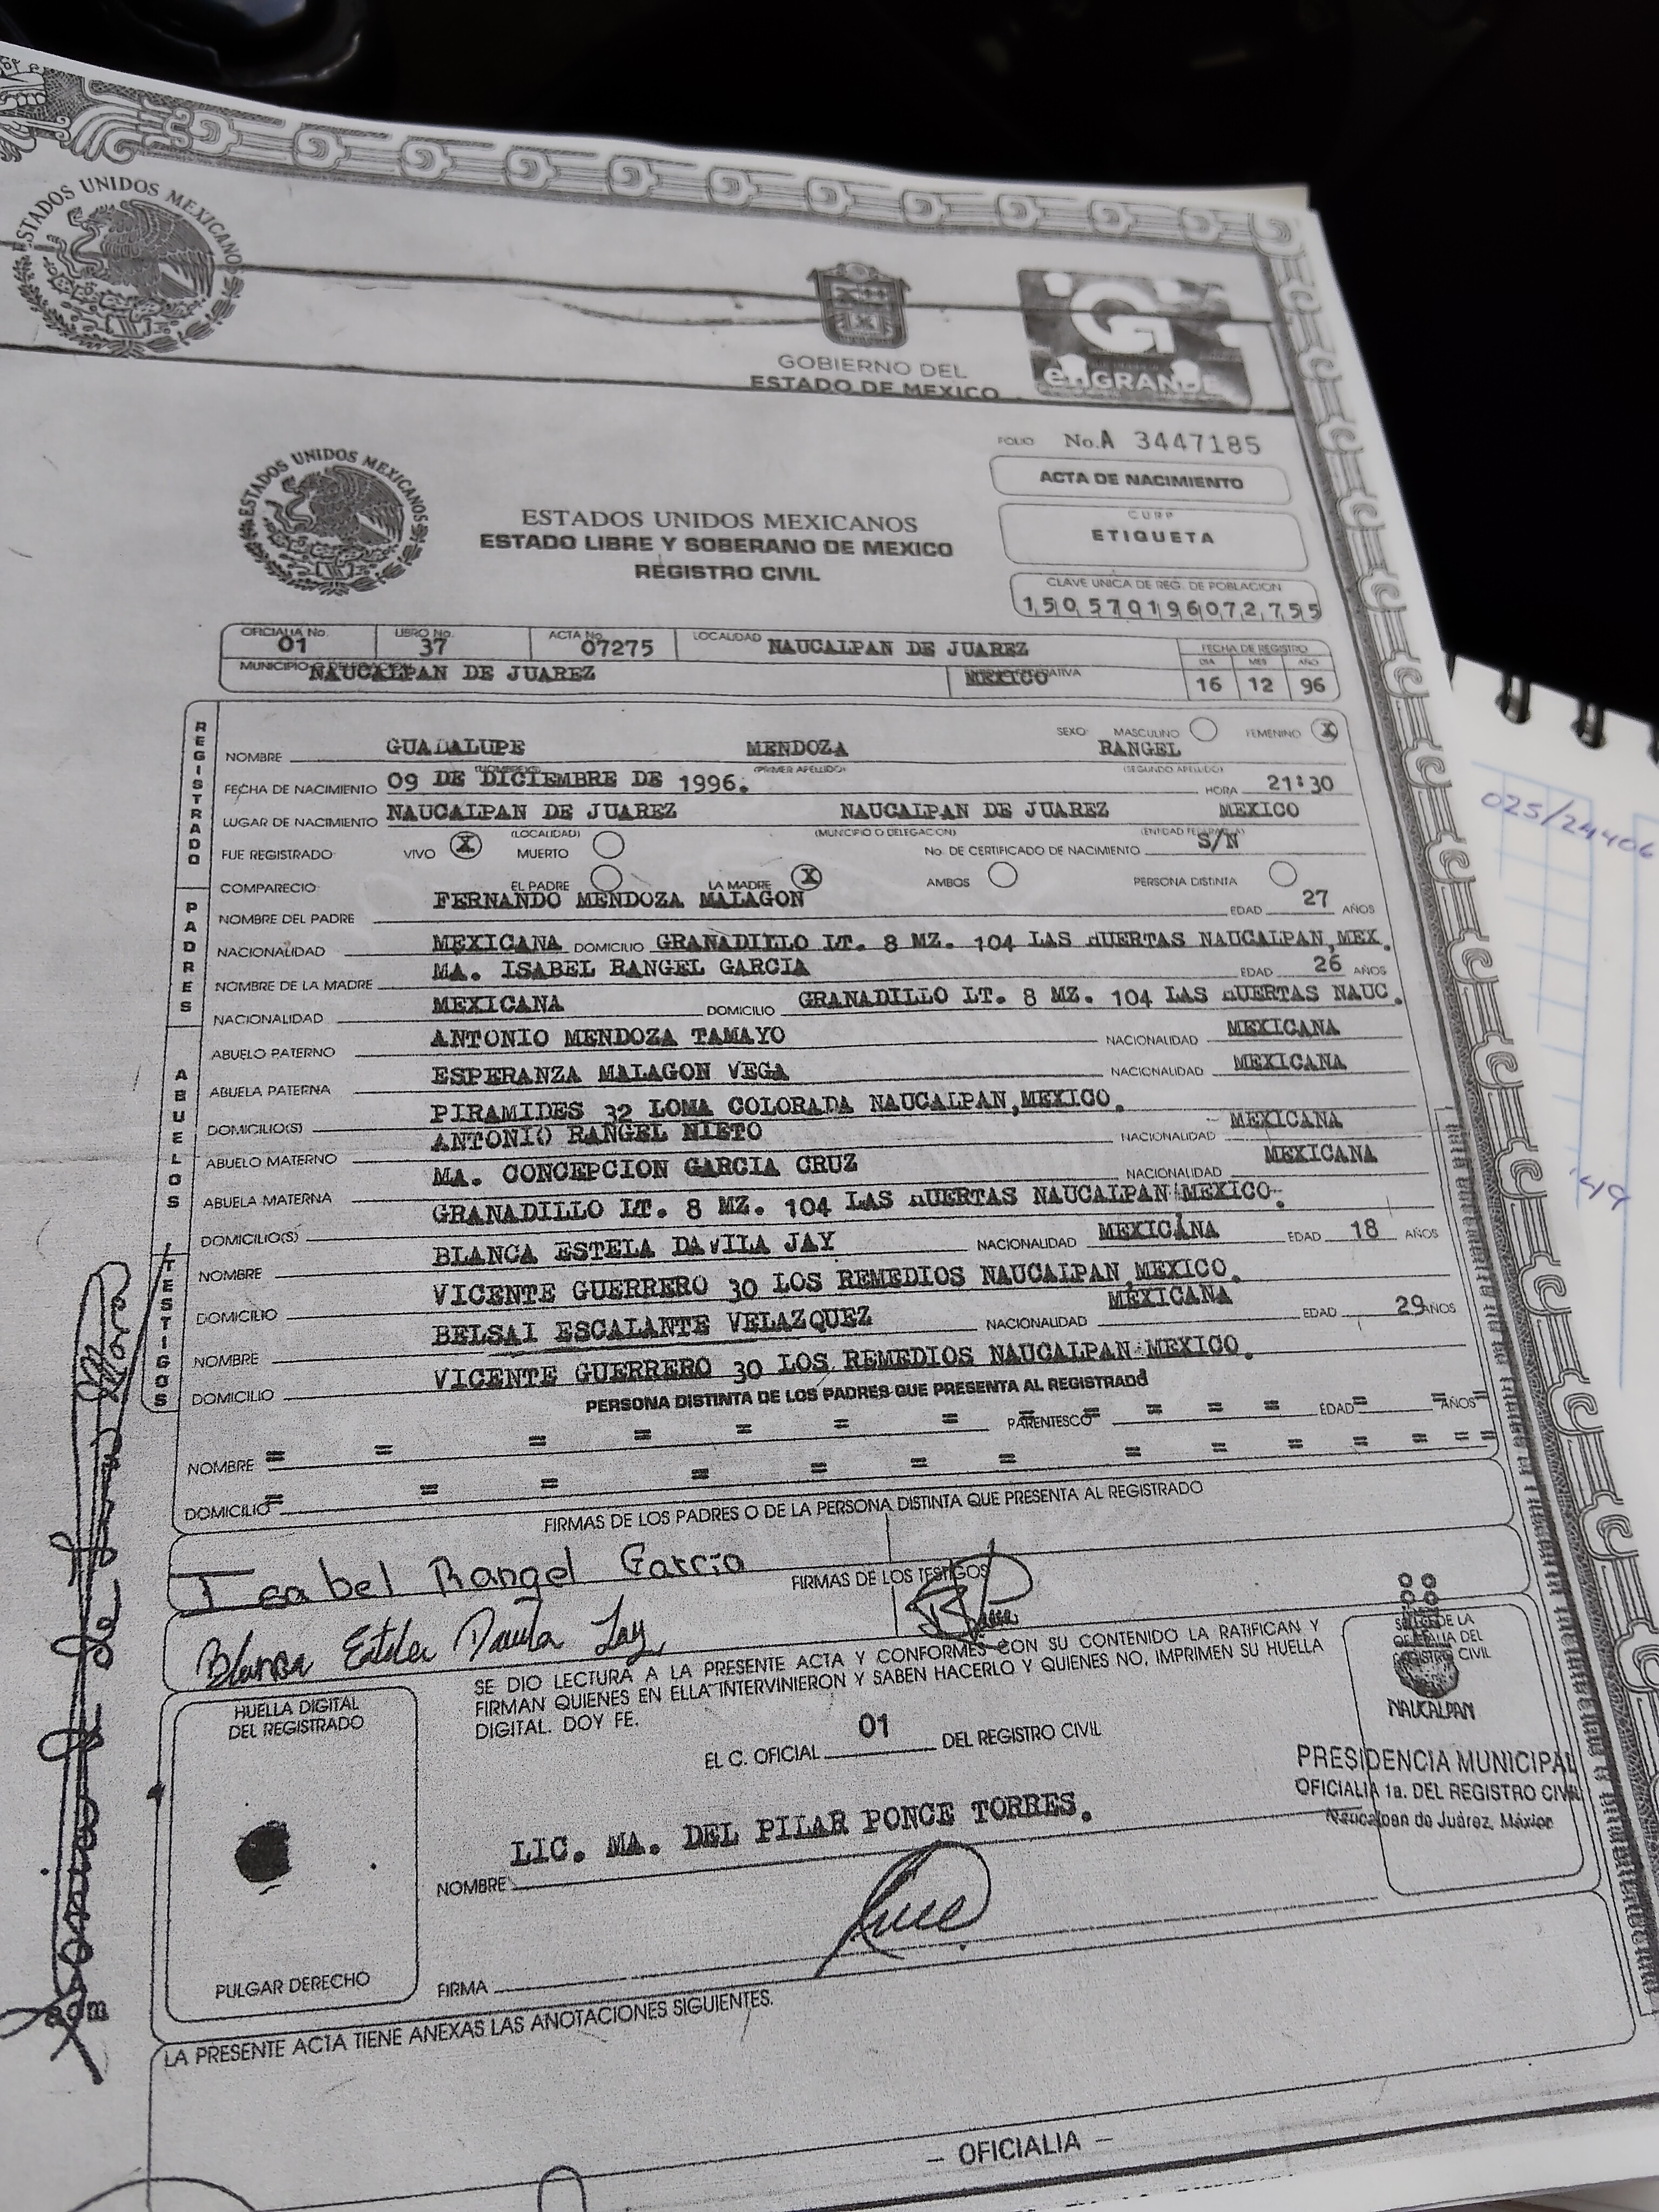 ESTADOS UNIDOS MEXICANO
GOBIERNO DEL
ESTADO DE MEXICO
enGRANDE
FOLIO No. A 3447185
ACTA DE NACIMIENTO
CURP
ETIQUETA
ESTADOS UNIDOS MEXICANOS
ESTADOS UNIDOS MEXICANOS
ESTADO LIBRE Y SOBERANO DE MEXICO
REGISTRO CIVIL
CLAVE UNICA DE REG. DE POBLACION
150570196072755
OFICIALIA No. 01 LIBRO No. 37 ACTA No. 07275 LOCALIDAD NAUCALPAN DE JUAREZ FECHA DE REGISTRO
MUNICIPIO O DELEGACION NAUCALPAN DE JUAREZ MEXICO DIA 16 MES 12 AÑO 96
REGISTRADO
SEXO: MASCULINO FEMENINO X
NOMBRE GUADALUPE MENDOZA RANGEL
(NOMBRE(S)) (PRIMER APELLIDO) (SEGUNDO APELLIDO)
FECHA DE NACIMIENTO 09 DE DICIEMBRE DE 1996. HORA 21:30
LUGAR DE NACIMIENTO NAUCALPAN DE JUAREZ NAUCALPAN DE JUAREZ MEXICO
(LOCALIDAD) (MUNICIPIO O DELEGACION) (ENTIDAD FEDERATIVA)
FUE REGISTRADO: VIVO X MUERTO No. DE CERTIFICADO DE NACIMIENTO S/N
COMPARECIO: EL PADRE LA MADRE X AMBOS PERSONA DISTINTA
PADRES
NOMBRE DEL PADRE FERNANDO MENDOZA MALAGON EDAD 27 AÑOS
NACIONALIDAD MEXICANA DOMICILIO GRANADILLO LT. 8 MZ. 104 LAS HUERTAS NAUCALPAN,MEX.
NOMBRE DE LA MADRE MA. ISABEL RANGEL GARCIA EDAD 26 AÑOS
NACIONALIDAD MEXICANA DOMICILIO GRANADILLO LT. 8 MZ. 104 LAS HUERTAS NAUC.
ABUELOS
ABUELO PATERNO ANTONIO MENDOZA TAMAYO NACIONALIDAD MEXICANA
ABUELA PATERNA ESPERANZA MALAGON VEGA NACIONALIDAD MEXICANA
DOMICILIO(S) PIRAMIDES 32 LOMA COLORADA NAUCALPAN,MEXICO.
ABUELO MATERNO ANTONIO RANGEL NIETO NACIONALIDAD MEXICANA
ABUELA MATERNA MA. CONCEPCION GARCIA CRUZ NACIONALIDAD MEXICANA
DOMICILIO(S) GRANADILLO LT. 8 MZ. 104 LAS HUERTAS NAUCALPAN MEXICO.
TESTIGOS
NOMBRE BLANCA ESTELA DAVILA JAY NACIONALIDAD MEXICANA EDAD 18 AÑOS
DOMICILIO VICENTE GUERRERO 30 LOS REMEDIOS NAUCALPAN,MEXICO.
NOMBRE BELSAI ESCALANTE VELAZQUEZ NACIONALIDAD MEXICANA EDAD 29 AÑOS
DOMICILIO VICENTE GUERRERO 30 LOS REMEDIOS NAUCALPAN MEXICO.
PERSONA DISTINTA DE LOS PADRES QUE PRESENTA AL REGISTRADO
NOMBRE = = = = = = PARENTESCO = = = = EDAD = AÑOS =
DOMICILIO = = = = = = = = = = = = =
FIRMAS DE LOS PADRES O DE LA PERSONA DISTINTA QUE PRESENTA AL REGISTRADO
Isabel Rangel Garcia
FIRMAS DE LOS TESTIGOS
Blanca Estela Davila Jay
SE DIO LECTURA A LA PRESENTE ACTA Y CONFORMES CON SU CONTENIDO LA RATIFICAN Y
FIRMAN QUIENES EN ELLA INTERVINIERON Y SABEN HACERLO Y QUIENES NO, IMPRIMEN SU HUELLA
DIGITAL. DOY FE.
HUELLA DIGITAL
DEL REGISTRADO
EL C. OFICIAL 01 DEL REGISTRO CIVIL
NAUCALPAN
PRESIDENCIA MUNICIPAL
OFICIALIA 1a. DEL REGISTRO CIVIL
Naucalpan de Juárez, México
NOMBRE LIC. MA. DEL PILAR PONCE TORRES.
FIRMA
PULGAR DERECHO
LA PRESENTE ACTA TIENE ANEXAS LAS ANOTACIONES SIGUIENTES.
- OFICIALIA -
025/24406